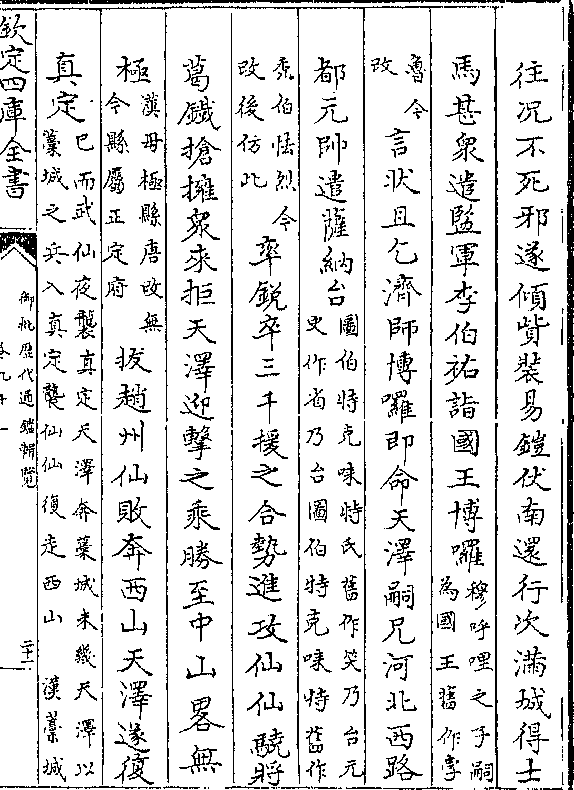 往况不死邪遂傾貲裝易鎧伏南還行次滿城得士
馬甚衆遣監軍李伯祐詣國王博囉穆呼哩之子嗣為國王舊作孛
魯今改言狀且乞濟師博囉即命天澤嗣兄河北西路
都元帥遣薩納台圖伯特克味特氏舊作笑乃台元史作肖乃台圖伯特克味特舊作
禿伯怯烈今改後仿此率鋭卒三千援之合勢進攻仙仙驍將
葛鐵搶擁衆來拒天澤迎擊之乘勝至中山畧無
極漢毋極縣唐改無今縣屬正定府拔趙州仙敗奔西山天澤遂復
真定已而武仙夜襲真定天澤奔藁城未幾天澤以藁城之兵入真定襲仙仙復走西山　漢藁城
欽定四庫全書
御批歷代通鑑輯覽
二十二